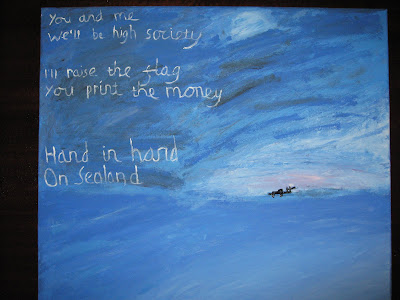 You and me
We'll be high society
I'll raise the flag
You print the money
Hand in hand
On Sealand